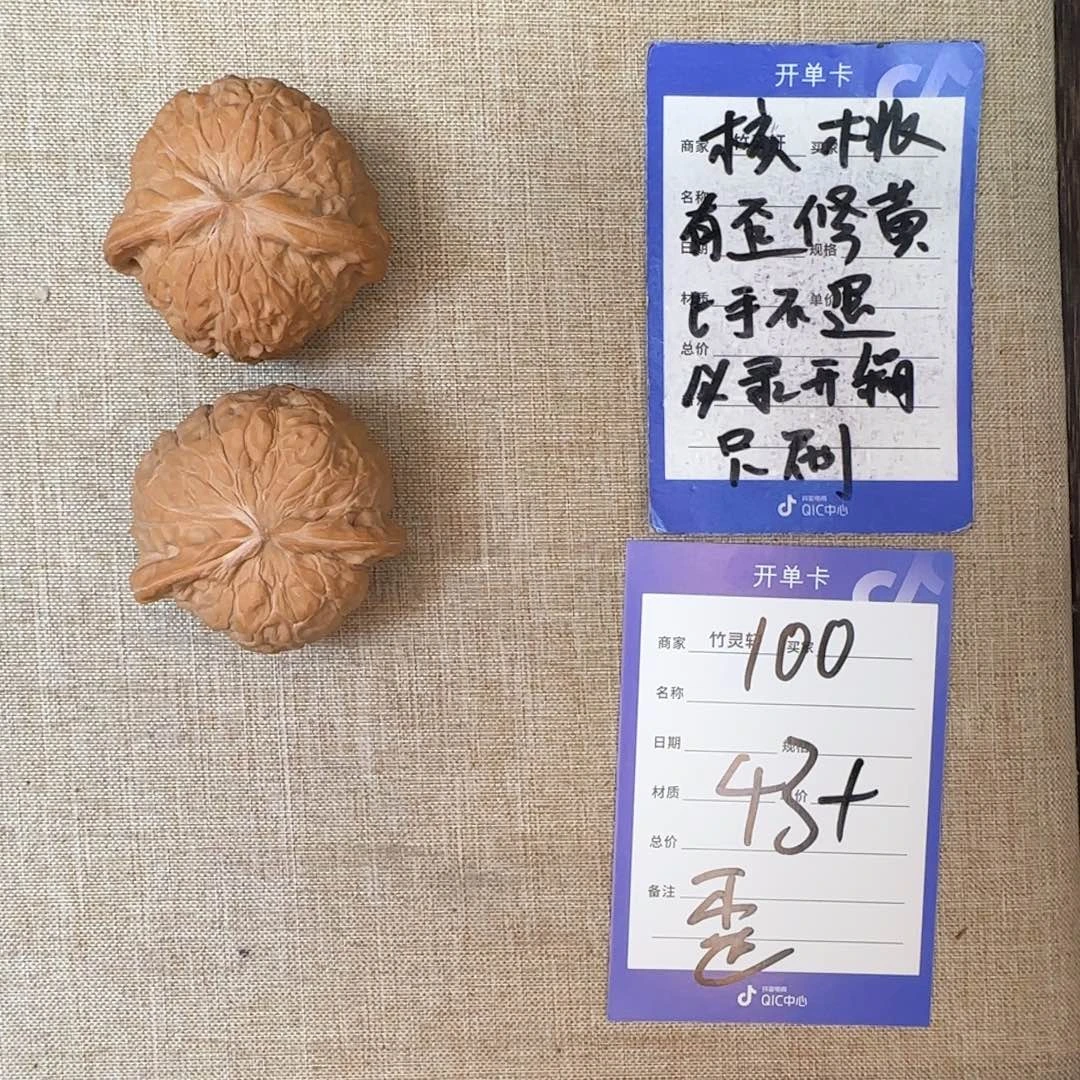 开单卡
核桃
商家
买家
名称
有歪修黄
日期
规格
上手不退
材质
单价
总价
必录开箱
只刷
抖音电商
QIC中心
开单卡
商家 竹灵轩 买家
100
名称
日期 规格
43+
材质 单价
总价
备注
歪
抖音电商
QIC中心